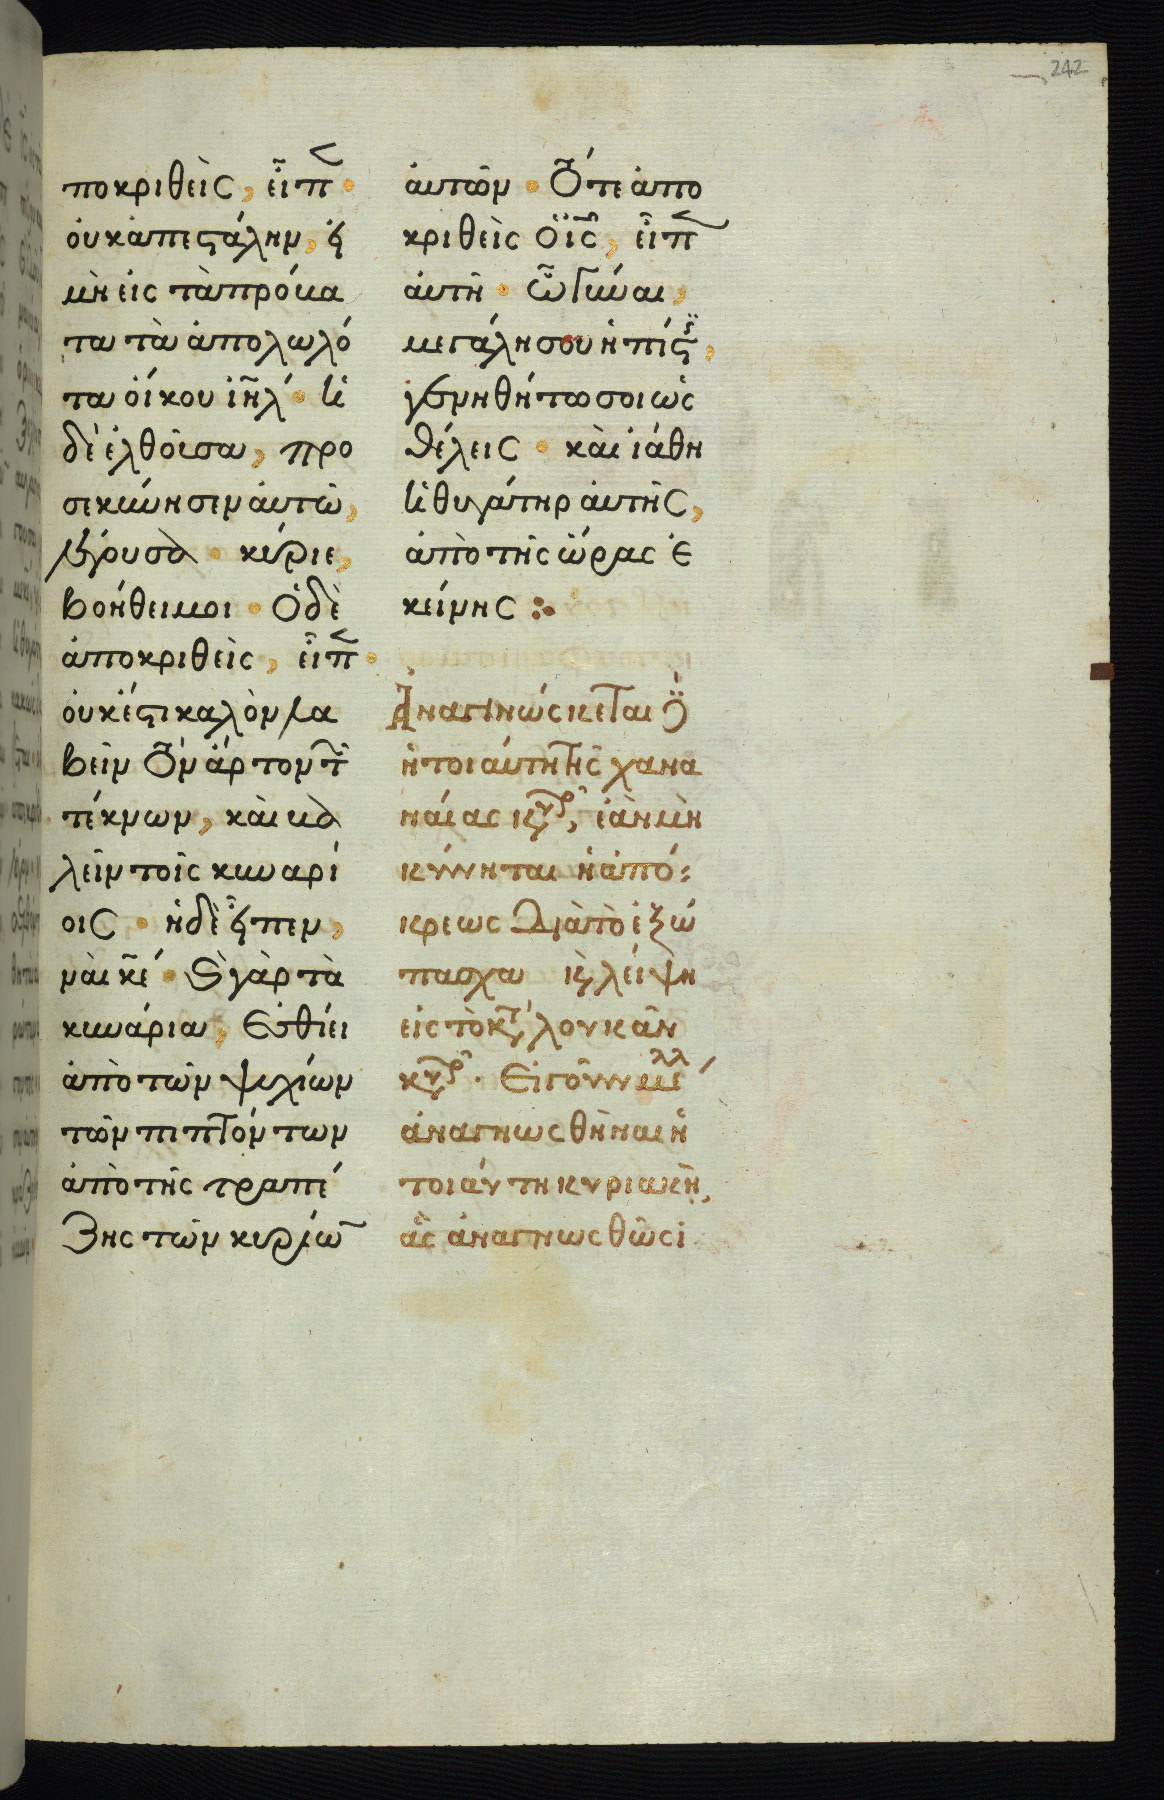 242
ποκριθεὶς, εἶπ
οὐκ ἀπεστάλην, εἰ
μὴ εἰς τὰ πρόβα
τα τὰ ἀπολωλό
τα οἴκου ἰηλ. ἡ
δὲ ἐλθοῦσα, προ
σεκύνησεν αὐτῶ,
λέγουσα. κύριε,
βοήθει μοι. Ὁ δὲ
ἀποκριθεὶς, εἶπ.
οὐκ ἔστι καλὸν λα
βεῖν τὸν ἄρτον τῶν
τέκνων, καὶ βα
λεῖν τοῖς κυναρί
οις. ἡ δὲ εἶπεν,
ναὶ κε. καὶ γὰρ τὰ
κυνάρια, ἐσθίει
ἀπὸ τῶν ψιχίων
τῶν πιπτόντων
ἀπὸ τῆς τραπέ
ζης τῶν κυρίω
αὐτῶν. Τότε ἀπο
κριθεὶς ὁ ις, εἶπ
αὐτῆ. ὦ γύναι,
μεγάλη σου ἡ πίστις,
γενηθήτω σοι ὡς
θέλεις. καὶ ἰάθη
ἡ θυγάτηρ αὐτῆς,
ἀπὸ τῆς ὥρας ἐ
κείνης
Ἀναγινώσκεται
ἡ τοιαύτη τῆς χανα
ναίας κυρ, ἐὰν μὴ
κύνηται ἡ ἀπό
κρεως διὰ τὸ ἔξω
πασχα λείψη
εἰς τὸν λον κἂν
κυρ. Εἰ γοῦν μελλ
ἀναγνωσθῆναι ἡ
τοιάυτη κυριακὴ,
ἂς ἀναγνωσθῶσι